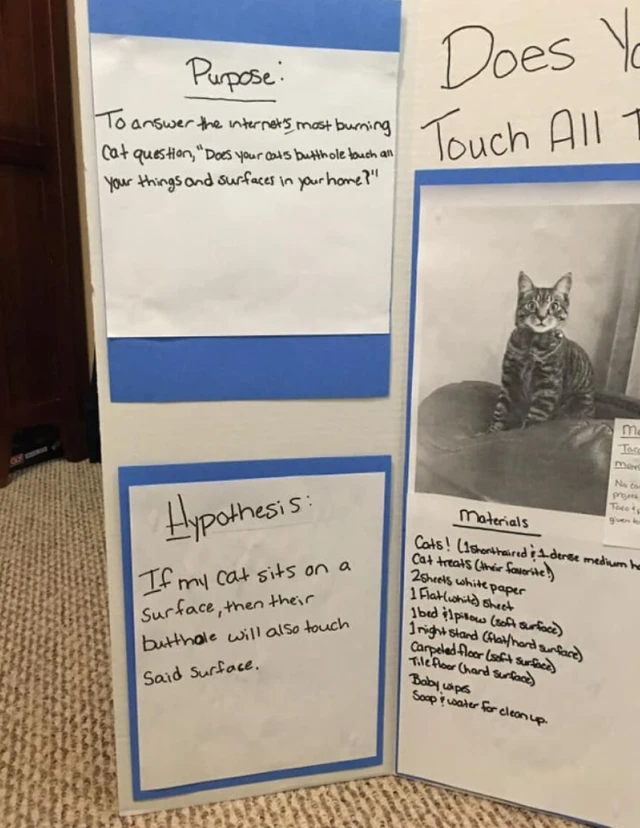 Purpose:
To answer the internet's most burning
cat question, "Does your cats butthole touch all
your things and surfaces in your home?"
Hypothesis:
If my cat sits on a
surface, then their
butthole will also touch
said surface.
Does
Touch All
Materials
Cats! (1 shorthaired & 1 dense medium
Cat treats (their favorite!)
2 sheets white paper
1 Flat (white) sheet
1 bed & 1 pillow (soft surface)
1 night stand (flat/hard surface)
Carpeted floor (soft surface)
Tile floor (hard surface)
Baby wipes
Soap & water for clean up.